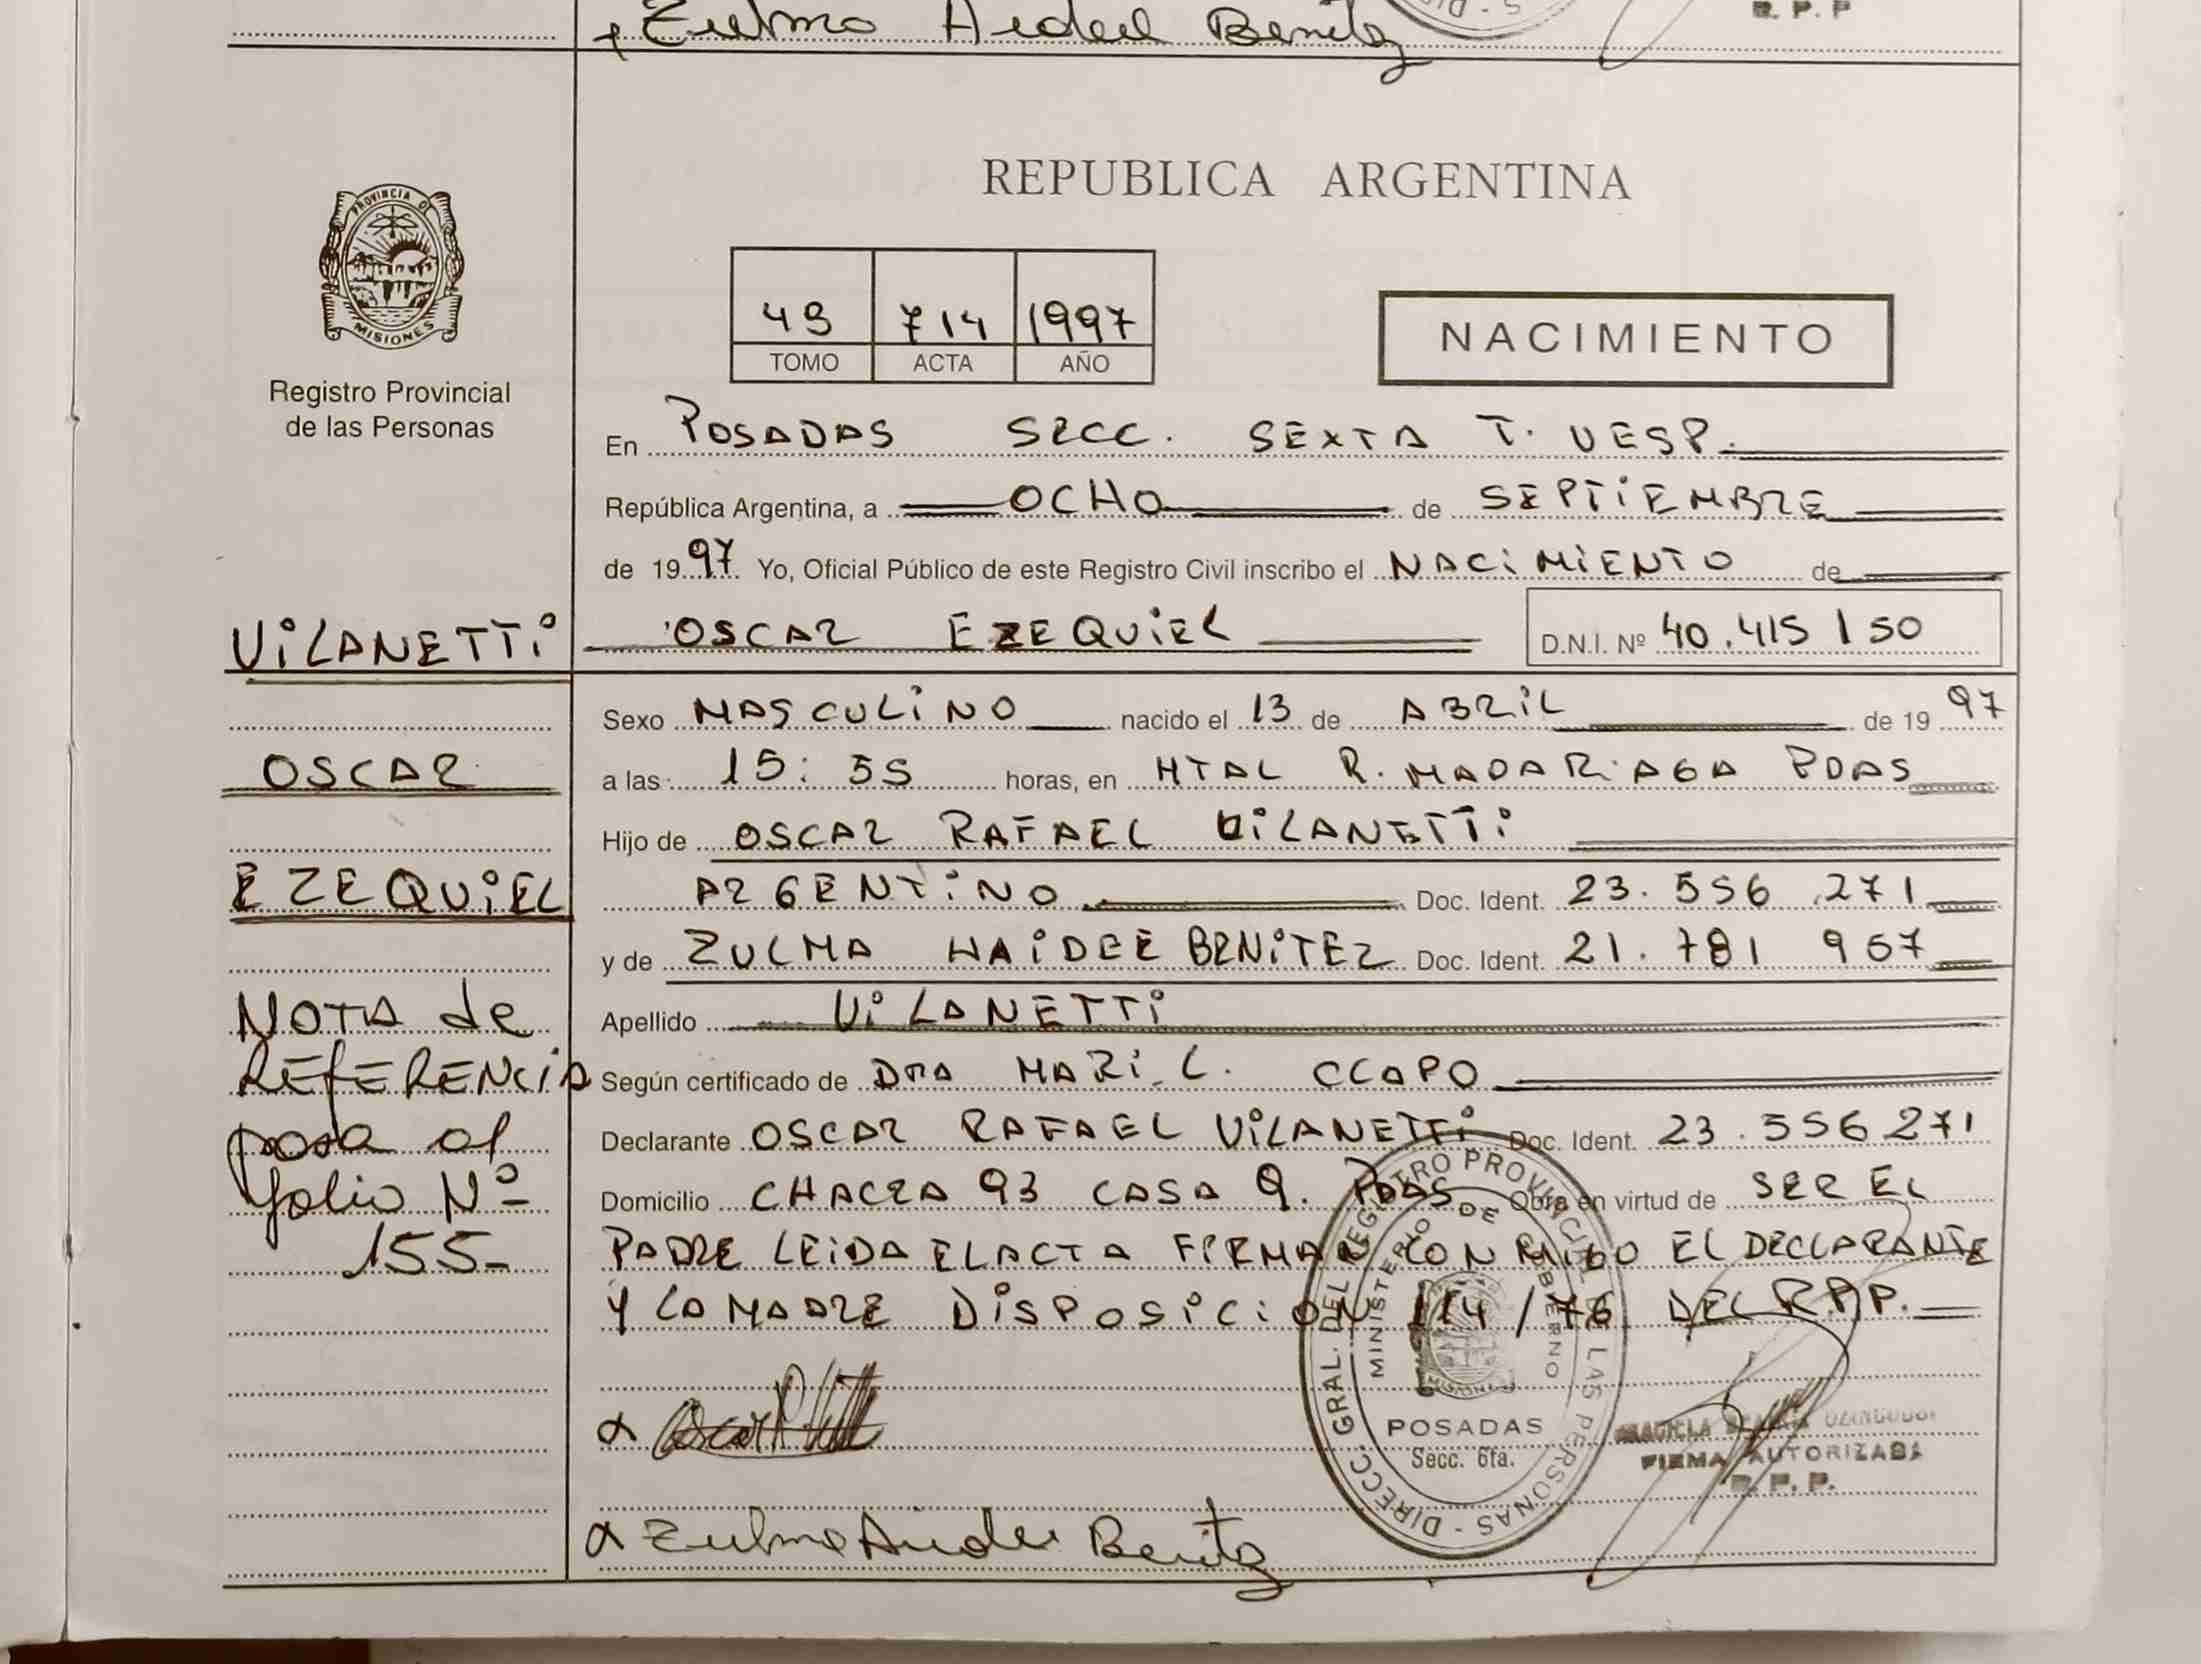 Zulma Aidee Benitez
R. P. P
PROVINCIA DE
MISIONES
Registro Provincial
de las Personas
REPUBLICA ARGENTINA
49 714 1997
TOMO ACTA AÑO
NACIMIENTO
En POSADAS SECC. SEXTA T. VESP.
República Argentina, a OCHO de SEPTIEMBRE
de 1997 Yo, Oficial Público de este Registro Civil inscribo el NACIMIENTO de
VILANETTI OSCAR EZEQUIEL D.N.I. Nº 40.415 150
Sexo MASCULINO nacido el 13 de ABRIL de 19 97
OSCAR
a las 15:55 horas, en HTAL R. MADARIAGA PDAS
Hijo de OSCAR RAFAEL VILANETTI
EZEQUIEL
ARGENTINO Doc. Ident. 23.556 271
y de ZULMA HAIDEE BENITEZ Doc. Ident. 21.781 967
NOTA de
Apellido VILANETTI
REFERENCIA
Según certificado de DRA MARI. C.
pasa al
Declarante OSCAR RAFAEL VILANETTI Doc. Ident. 23.556 271
folio Nº
Domicilio CHACRA 93 CASA 9. PDAS Obra en virtud de SER EL
155-
PADRE LEIDA EL ACTA FIRMAN CONMIGO EL DECLARANTE
Y LA MADRE DISPOSICION 114/76 DEL R.P.P.
DIRECC. GRAL. DEL REGISTRO PROVINCIAL DE LAS PERSONAS
MINISTERIO DE GOBIERNO
MISIONES
POSADAS
Secc. 6ta.
FIRMA AUTORIZADA
R. P. P.
Zulma Aidee Benitez